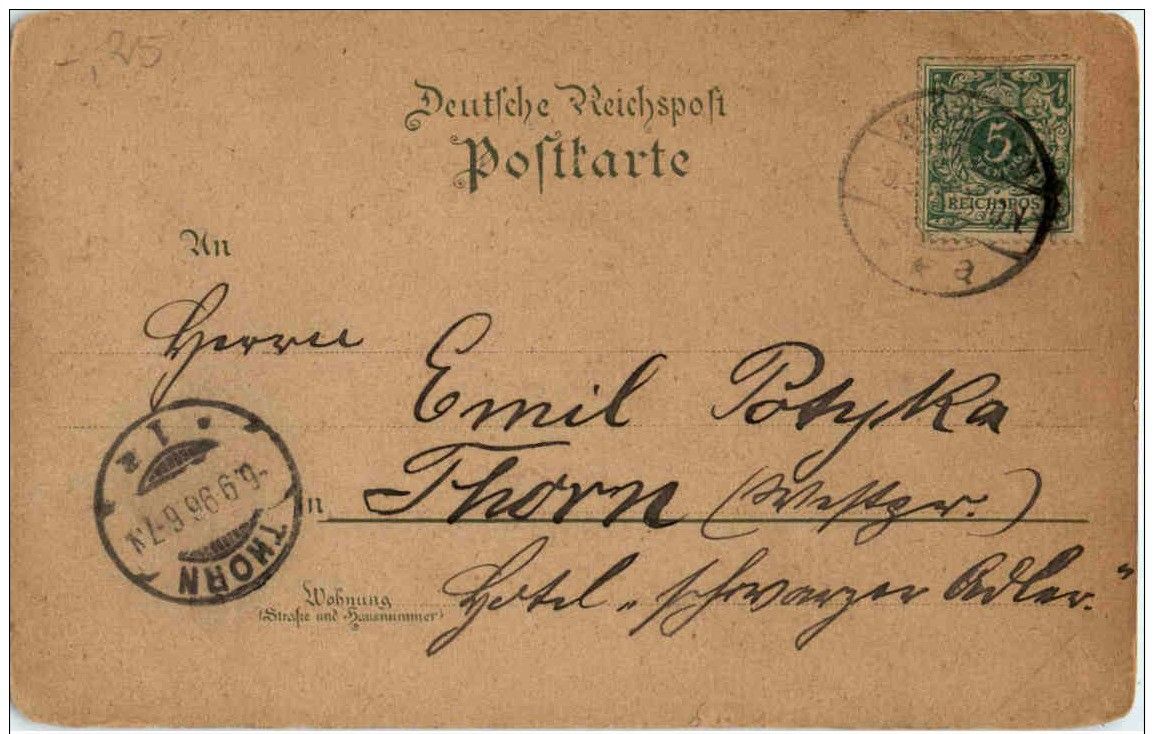 -,25
Deutsche Reichspost
Postkarte
5
REICHSPOST
* a
An
Herrn
Emil Potyka
in Thorn (Westpr.)
Hotel „schwarzer Adler."
Wohnung
(Straße und Hausnummer)
THORN
6.9.96 6-7N
* 1a *